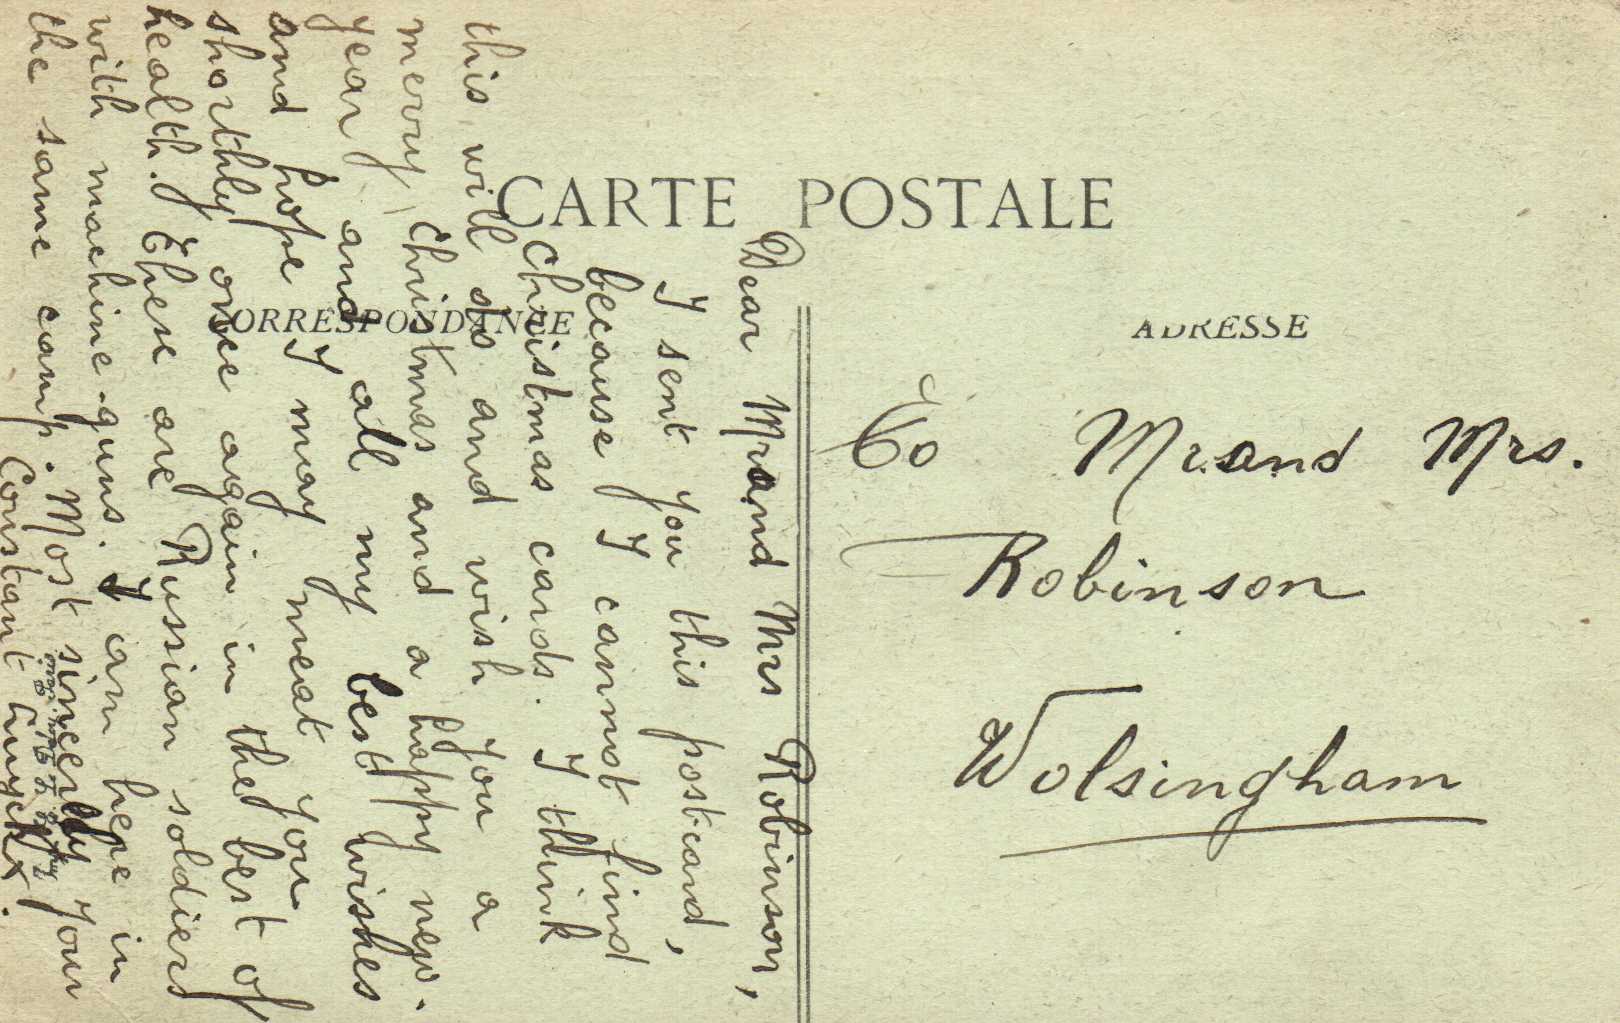 CARTE POSTALE
CORRESPONDANCE
ADRESSE
To Mr and Mrs.
Robinson
Wolsingham
Dear Mr and Mrs Robinson,
I sent you this postcard,
because I cannot find
Christmas cards. I think
this will do and wish you a
merry Christmas and a happy new.
year and all my best wishes
and hope I may meat you
shorthly once again in the best of
health. These are Russian soldiers
with machine-guns. I am here in
the same camp. Most sincerely your
Constant